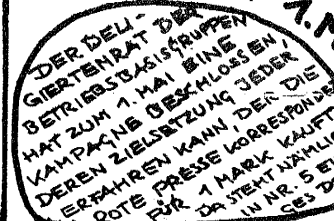 1. M
DER DELI-
GIERTENRAT DER
BETRIEBSBASISGRUPPEN
HAT ZUM 1. MAI EINE
KAMPAGNE BESCHLOSSEN,
DEREN ZIELSETZUNG JEDER
ERFAHREN KANN, DER DIE
ROTE PRESSE KORRESPONDE
FÜR 1 MARK KAUFT
DA STEHT NÄMLI
IN NR. 5 E
GES